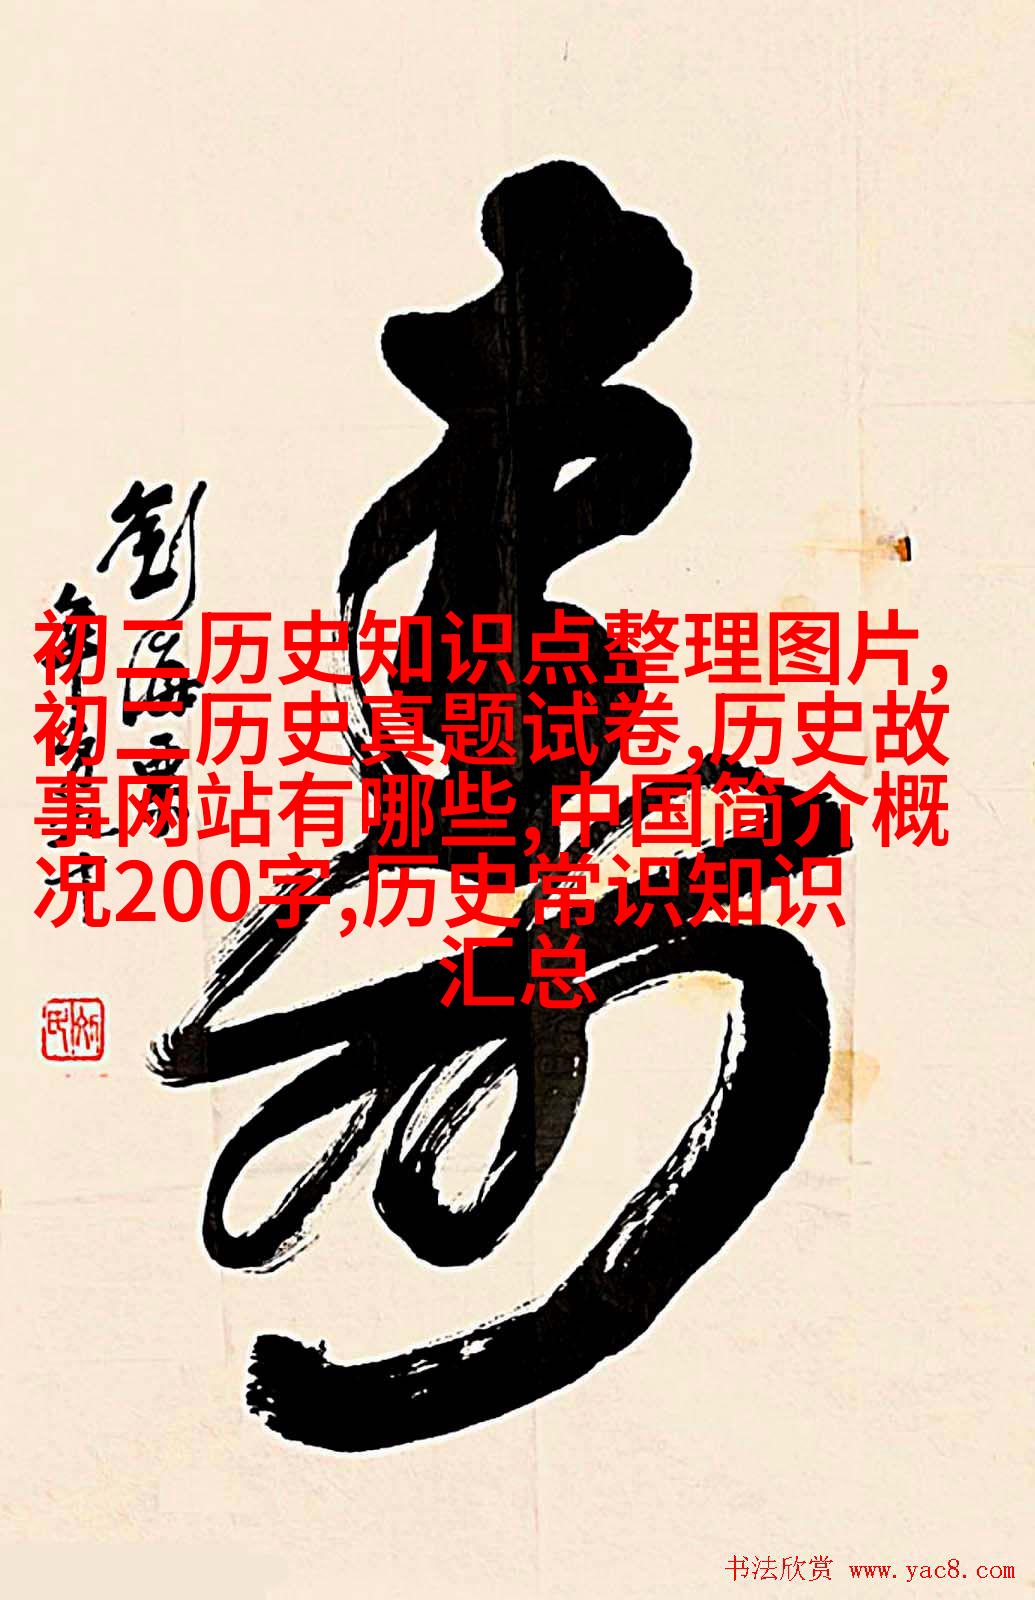 寿
劉海粟
年方九十
初二历史知识点整理图片,
初二历史真题试卷,历史故
事网站有哪些,中国简介概
况200字,历史常识知识
汇总
书法欣赏 www.yac8.com